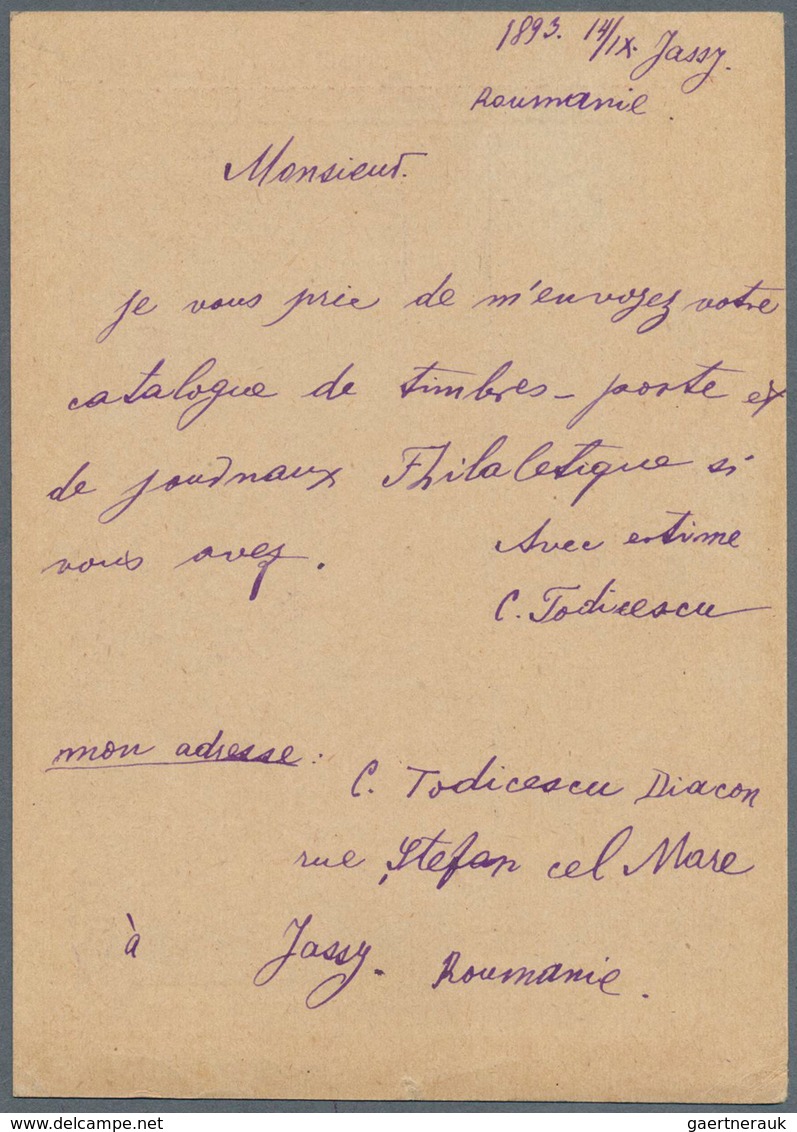 1893. 14/IX. Jassy.
Roumanie.
Monsieur.
je vous prie de m'envoyez votre
catalogue de timbres-poste et
de journaux Philaletique si
vous avez.
Avec estime
C. Todicescu
mon adresse:
C. Todicescu Diacon
rue Ștefan cel Mare
à Jassy. Roumanie.
gaertnerauk@delcampe.net